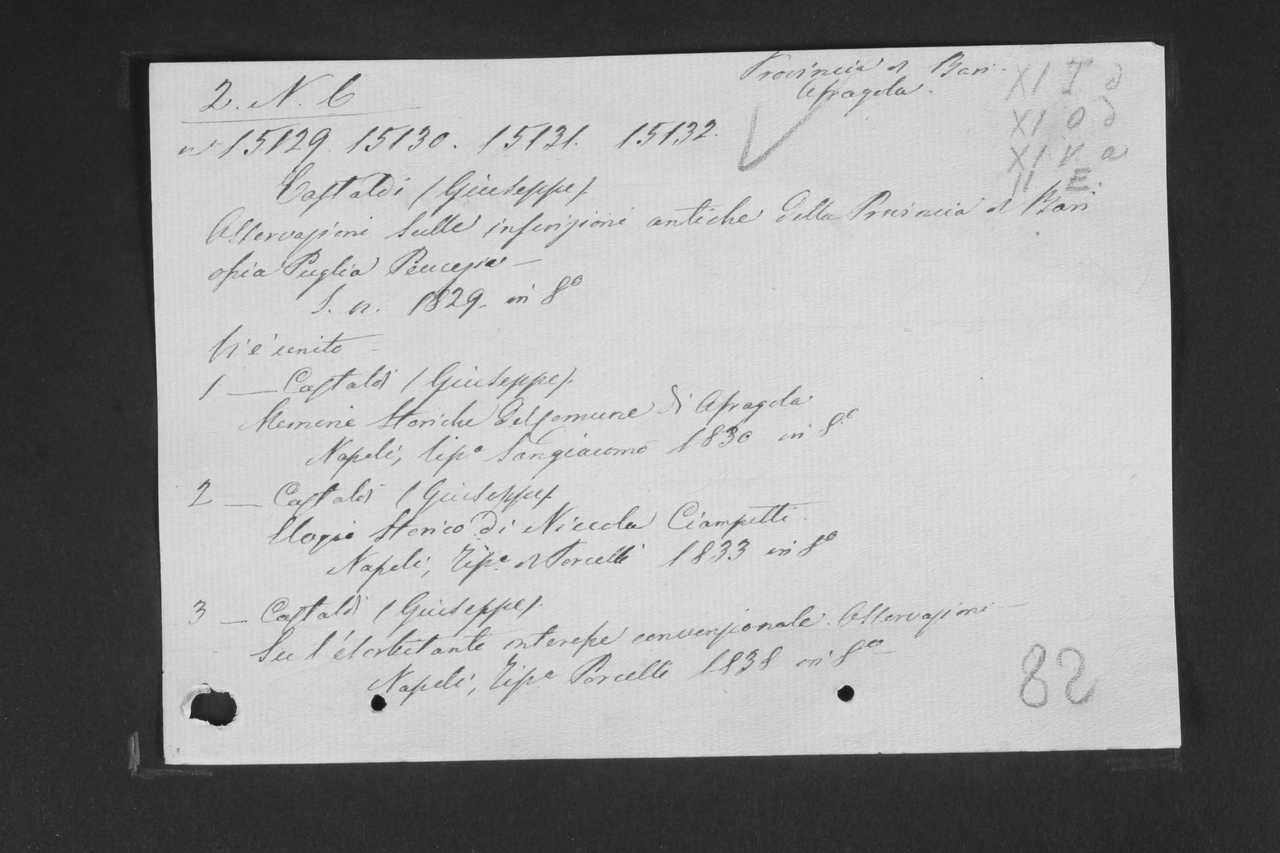 2. N. 6
Provincia di Bari.
Afragola.
XI I d
XI O d
XI V a
II E
nⁱ 15129. 15130. 15131. 15132.
Castaldi (Giuseppe)
Osservazioni sulle inscrizioni antiche della Provincia di Bari
ossia Puglia Peucezia —
S. n. 1829. in 8º
Vi è unito —
1 — Castaldi (Giuseppe).
Memorie Storiche del Comune di Afragola
Napoli, tipª Sangiacomo 1830 in 8º
2 — Castaldi (Giuseppe)
Elogio Storico di Niccola Ciampitti.
Napoli, Tipª di Porcelli 1833 in 8º
3 — Castaldi (Giuseppe).
Sull'esorbitante interesse convenzionale. Osservazioni —
Napoli, Tipª Porcelli 1838 in 8º
82